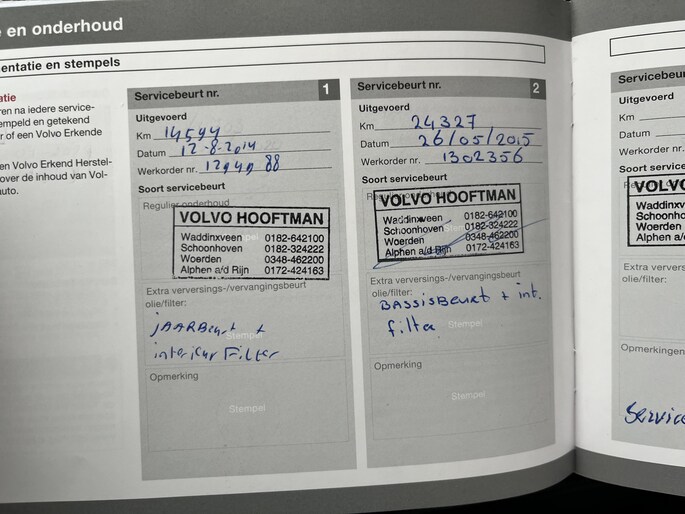 e en onderhoud
entatie en stempels
atie
ren na iedere service-
empeld en getekend
r of een Volvo Erkende
en Volvo Erkend Herstel-
over de inhoud van Vol-
auto.
Servicebeurt nr. 1
Uitgevoerd
Km 14594
Datum 12-8-2014
Werkorder nr.
Soort servicebeurt
Regulier onderhoud
VOLVO HOOFTMAN
Waddinxveen 0182-642100
Schoonhoven 0182-324222
Woerden 0348-462200
Alphen a/d Rijn 0172-424163
Stempel
Extra verversings-/vervangingsbeurt
olie/filter:
JAARBeurt +
interieur Filter
Stempel
Opmerking
Stempel
Servicebeurt nr. 2
Uitgevoerd
Km 24327
Datum 26/05/2015
Werkorder nr. 1302356
Soort servicebeurt
Regulier onderhoud
VOLVO HOOFTMAN
Waddinxveen 0182-642100
Schoonhoven 0182-324222
Woerden 0348-462200
Alphen a/d Rijn 0172-424163
Extra verversings-/vervangingsbeurt
olie/filter:
BASSISBEURT + int.
filter
Stempel
Opmerking
Stempel
Servicebeur
Uitgevoerd
Km
Datum
Werkorder nr.
Soort service
Regulier onde
VOLVO
Waddinx
Schoonh
Woerden
Alphen a
Extra verversin
olie/filter:
Opmerkingen
Service